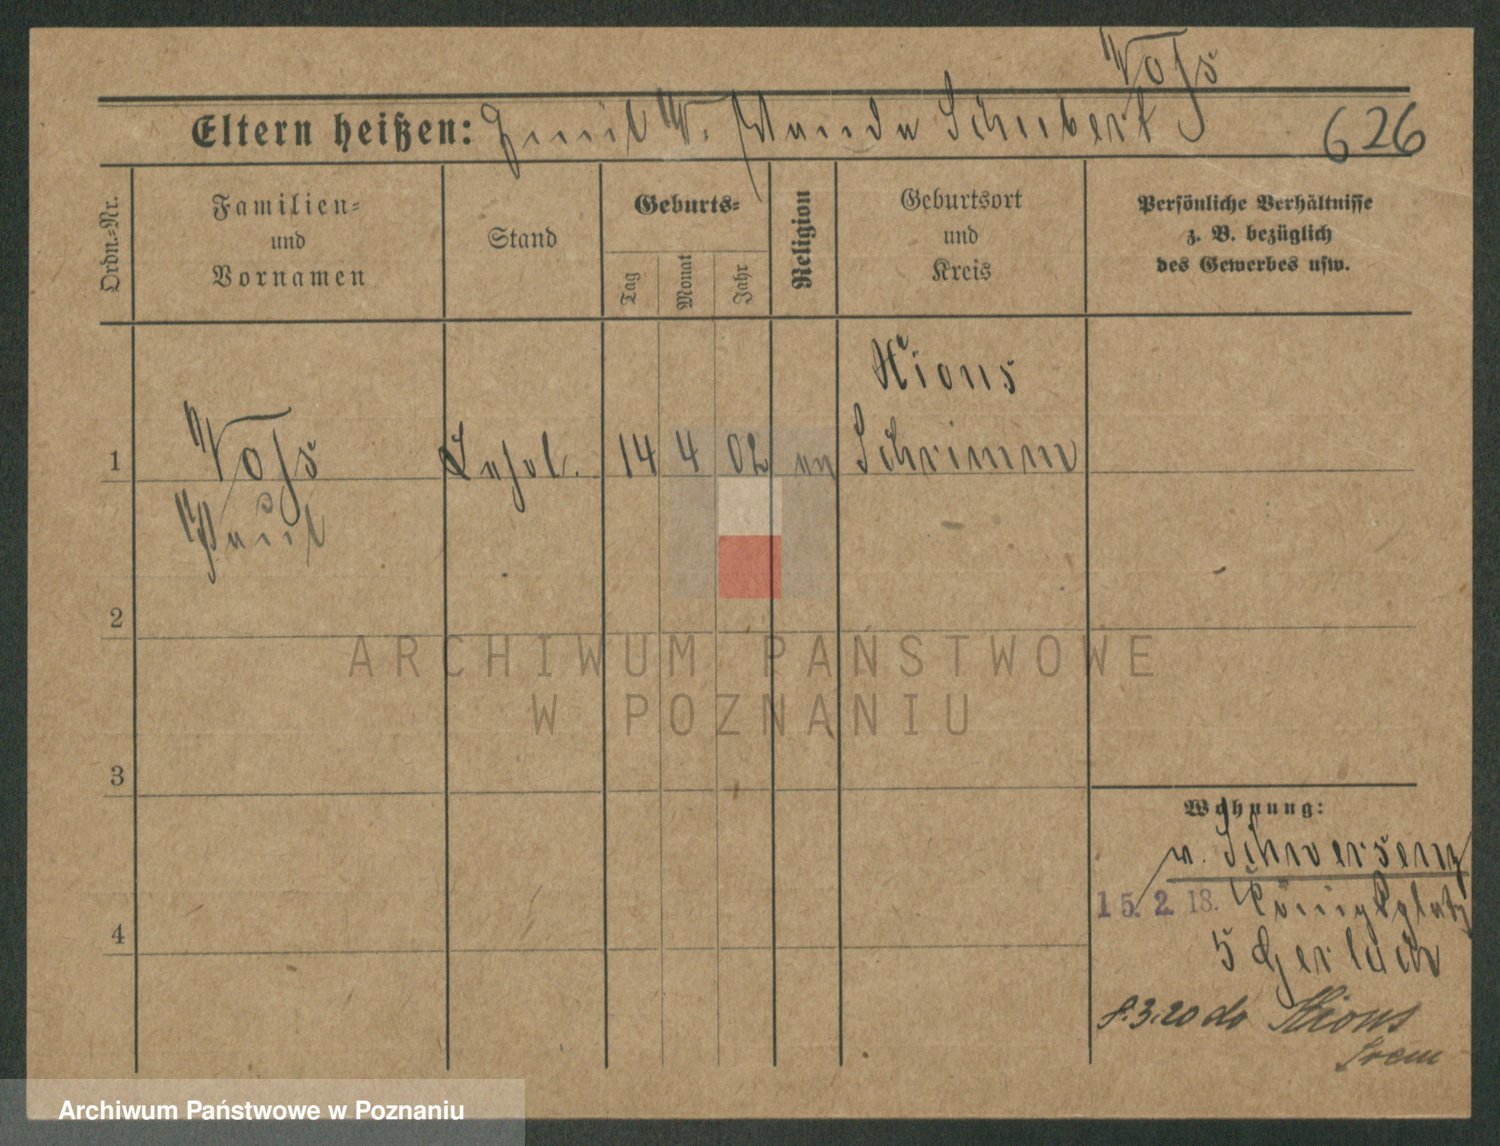 Voß
Eltern heißen: Emil V. Wanda Schubert
626
Ordn.-Nr.
Familien-
und
Vornamen
Stand
Geburts-
Tag
Monat
Jahr
Religion
Geburtsort
und
Kreis
Persönliche Verhältnisse
z. B. bezüglich
des Gewerbes usw.
Xions
1 Voß 14 4 02 Schrimm
Paul
2
3
4
ARCHIWUM PAŃSTWOWE
W POZNANIU
Wohnung:
v. Schwersenz
15. 2. 18. Königsplatz
5 Gerlach
8.3.20 do Xions
Srem
Archiwum Państwowe w Poznaniu